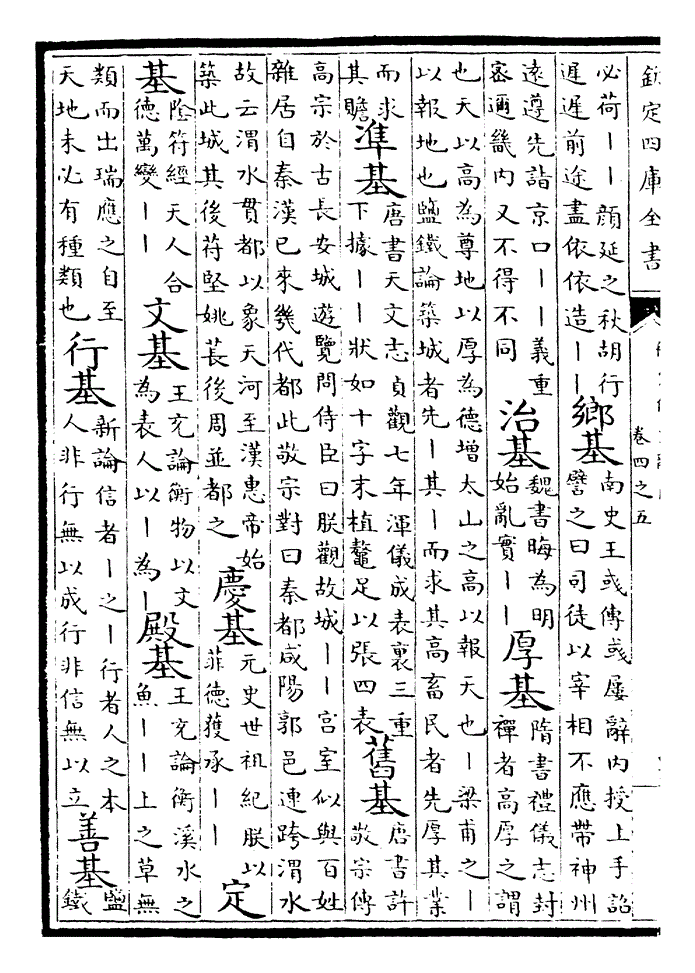 欽定四庫全書
卷四之五
必荷丨丨顔延之秋胡行
遲遲前途盡依依造丨丨
鄉基
南史王彧傳彧屢辭内授上手詔
譬之曰司徒以宰相不應帶神州
遠遵先詣京口丨丨義重
宻邇畿内又不得不同
治基
魏書晦為明
始亂實丨丨
厚基
隋書禮儀志封
禪者高厚之謂
也天以高為尊地以厚為德增太山之高以報天也丨梁甫之丨
以報地也鹽鐵論築城者先丨其丨而求其高畜民者先厚其業
而求
其贍
凖基
唐書天文志貞觀七年渾儀成表裏三重
下據丨丨狀如十字末植鼇足以張四表
舊基
唐書許
敬宗傳
高宗於古長安城遊覽問侍臣曰朕觀故城丨丨宫室似與百姓
雜居自秦漢已來幾代都此敬宗對曰秦都咸陽郭邑連跨渭水
故云渭水貫都以象天河至漢惠帝始
築此城其後苻堅姚萇後周並都之
慶基
元史世祖紀朕以
菲德獲承丨丨
定
基
陰符經天人合
德萬變丨丨
文基
王充論衡物以文
為表人以丨為丨
殿基
王充論衡溪水之
魚丨丨上之草無
類而出瑞應之自至
天地未必有種類也
行基
新論信者丨之丨行者人之本
人非行無以成行非信無以立
善基
鹽
鐵